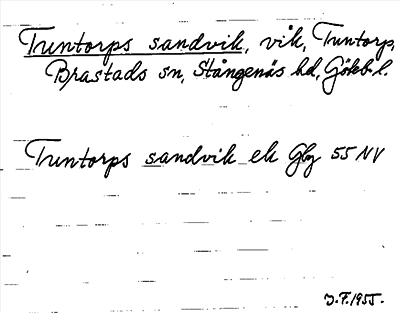 Tuntorps sandvik, vik, Tuntorp,
Brastads sn, Stångenäs hd, Göteb. l.
Tuntorps sandvik ek Gbg 55 NV
J.F. 1955.